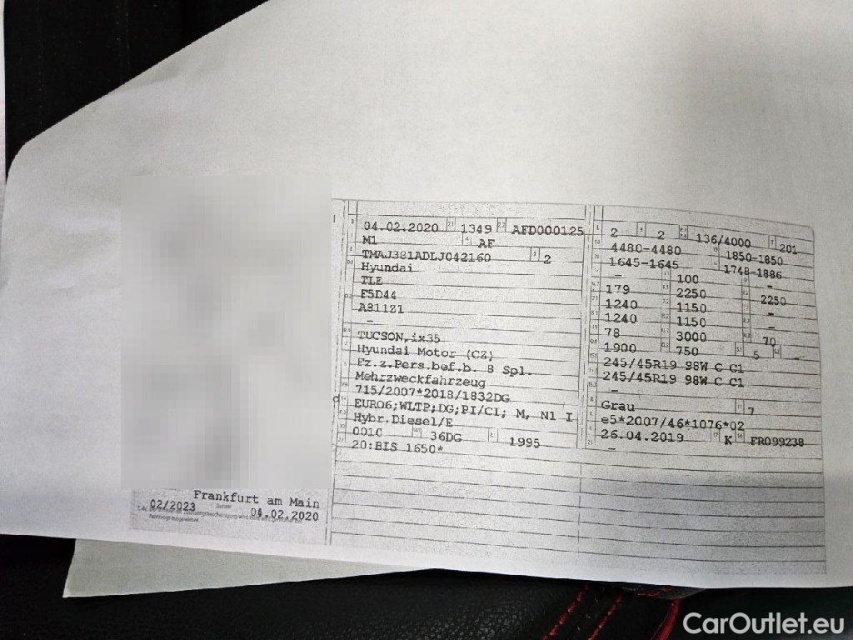 04.02.2020 1349 AFD000125
M1 AF
TMAJ381ADLJ042160 2
Hyundai
TLE
F5D44
A811Z1
-
TUCSON,ix35
Hyundai Motor (CZ)
Fz.z.Pers.bef.b. 8 Spl.
Mehrzweckfahrzeug
715/2007*2018/1832DG
EURO6;WLTP;DG;PI/CI; M, N1 I
Hybr.Diesel/E
0010 36DG 1995
20:BIS 1650*
2 2 136/4000 201
4480-4480 1850-1850
1645-1645 1748-1886
- 100
179 2250 2250
1240 1150 -
1240 1150 -
78 3000 70
1900 750 5 -
245/45R19 98W C C1
245/45R19 98W C C1
-
Grau 7
e5*2007/46*1076*02
26.04.2019 K FR099238
-
Frankfurt am Main
02/2023
04.02.2020
CarOutlet.eu